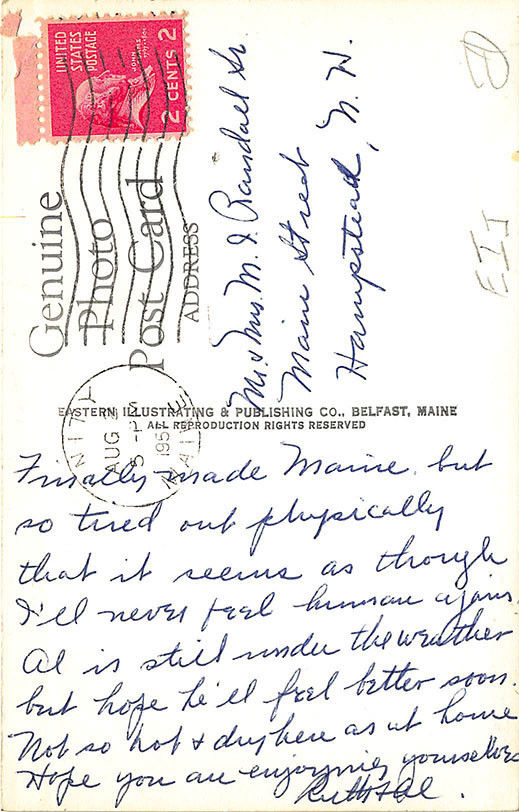 UNITED
STATES
POSTAGE
2 CENTS 2
Genuine
Photo
Post Card
ADDRESS
Mr. & Mrs. M. I. Randall Sr.
Main Street
Hampstead, N. H.
UNITY
AUG
5 - PM
195
MAINE
EASTERN ILLUSTRATING & PUBLISHING CO., BELFAST, MAINE
ALL REPRODUCTION RIGHTS RESERVED
Finally made Maine but
so tired out physically
that it seems as though
I'll never feel human again.
Al is still under the weather
but hope he'll feel better soon.
Not so hot & dry here as at home
Hope you are enjoying yourselves
Ruth & Al.